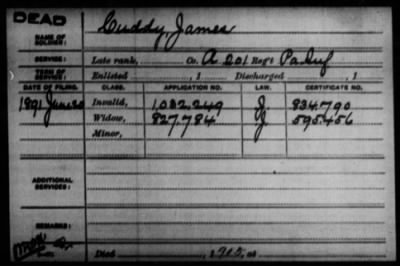 DEAD
NAME OF SOLDIER: Cuddy, James
SERVICE: Late rank, Co. A 201 Reg't Pa Inf
TERM OF SERVICE: Enlisted , 1 Discharged , 1
DATE OF FILING. CLASS. APPLICATION NO. LAW. CERTIFICATE NO.
1891 Invalid, 1,032,249 834.790
Widow, 827.784 595.456
Minor,
ADDITIONAL SERVICES:
REMARKS:
Died , 1905, at